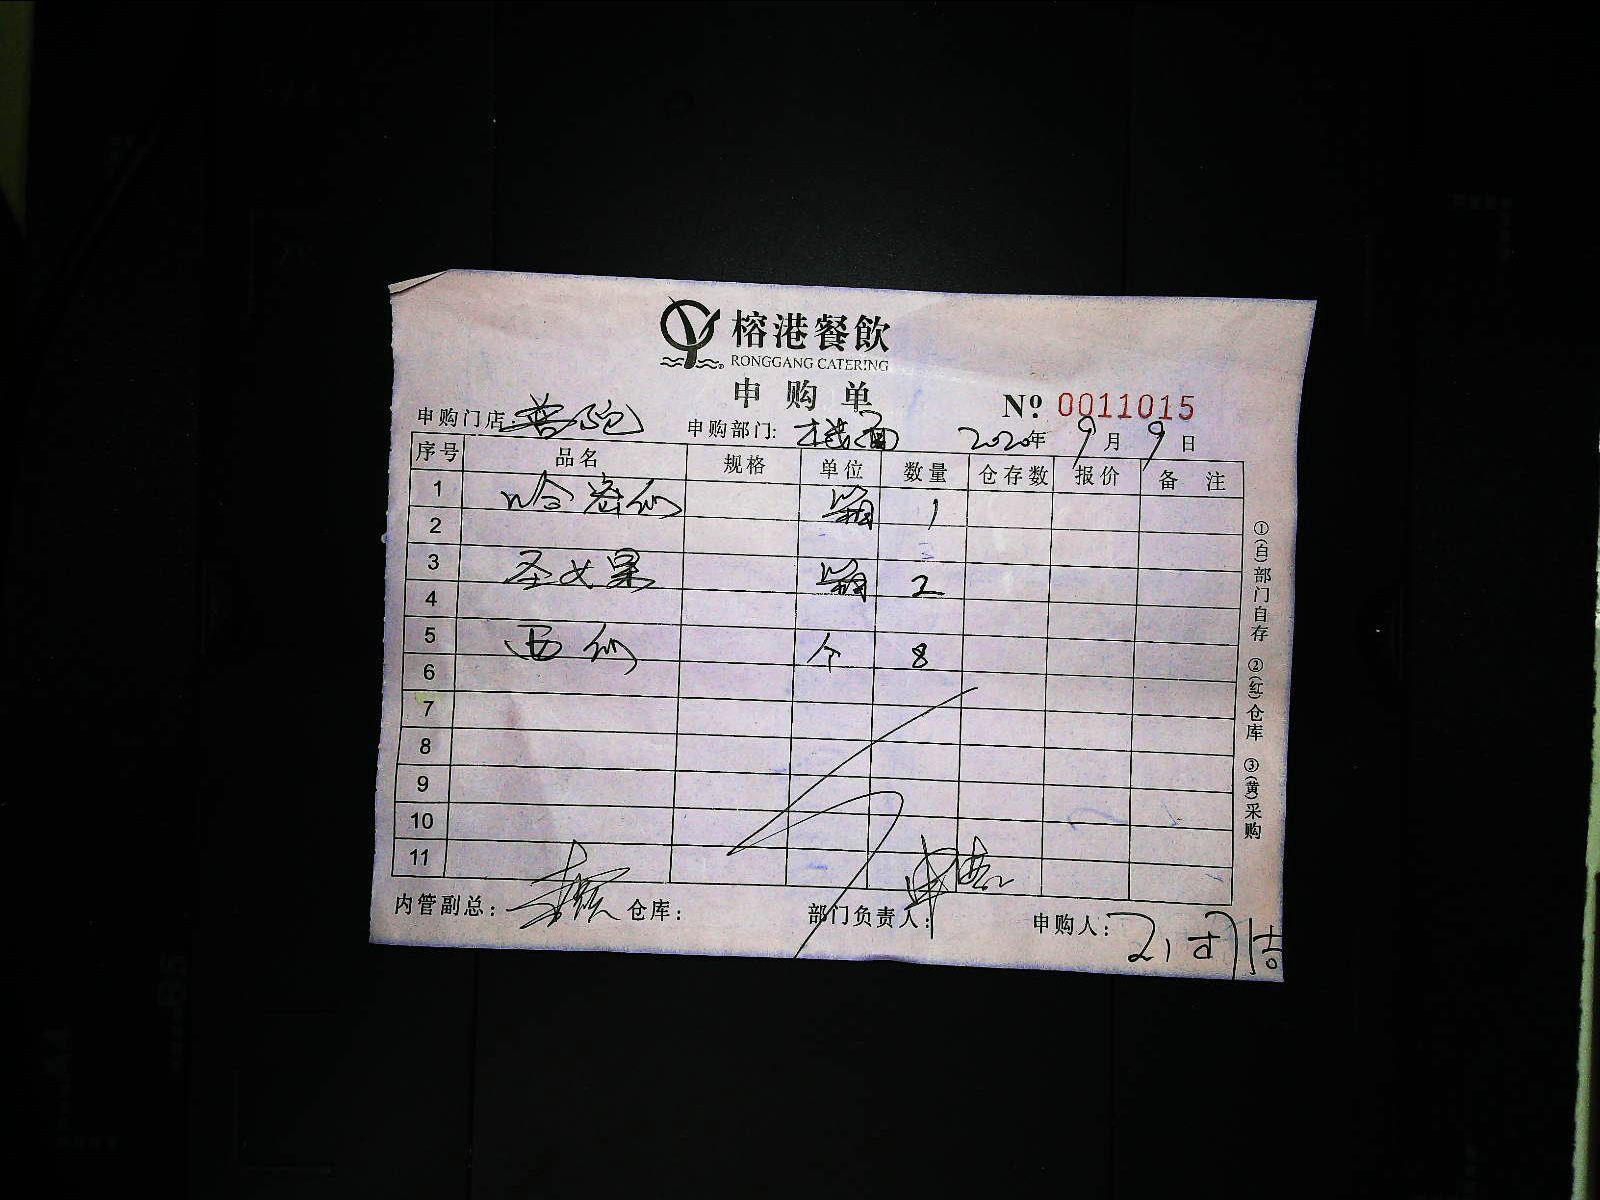 榕港餐飲
RONGGANG CATERING
申购单
Nº 0011015
申购门店: 申购部门: 楼面 2020年 9月 9日
序号 品名 规格 单位 数量 仓存数 报价 备 注
1 哈密瓜 箱 1
2
3 圣女果 箱 2
4
5 西瓜 个 8
6
7
8
9
10
11
内管副总: 仓库: 部门负责人: 申购人:
①(白)部门自存 ②(红)仓库 ③(黄)采购